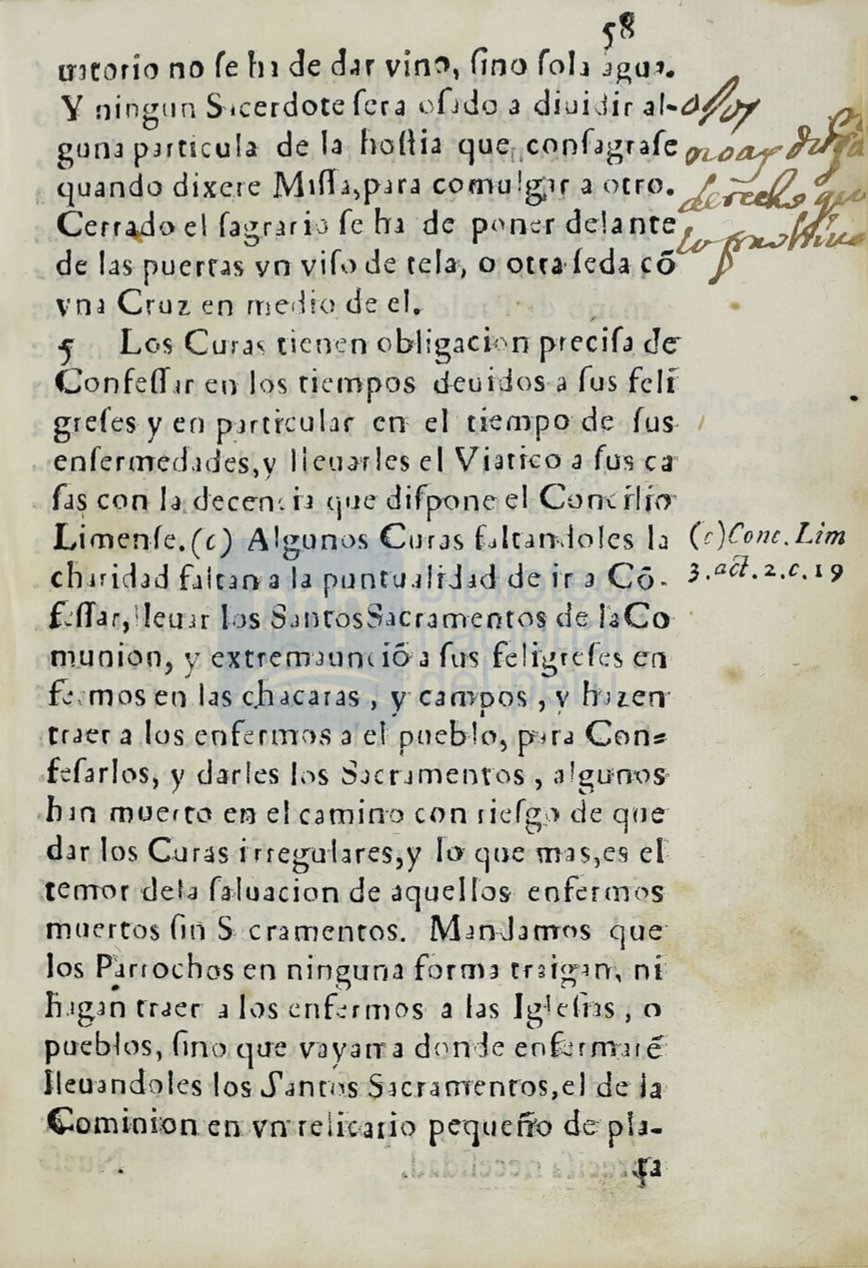 58
torio no ſe ha de dar vino, ſino ſola agua.
Y ningun Sacerdote ſera oſado a diuidir al-
guna particula de la hoſtia que conſagraſe
quando dixere Miſſa, para comulgar a otro.
Cerrado el ſagrario ſe ha de poner delante
de las puertas vn viſo de tela, o otra ſeda cõ
vna Cruz en medio de el.
5 Los Curas tienen obligacion preciſa de
Confeſſar en los tiempos deuidos a ſus feli
greſes y en particular en el tiempo de ſus
enfermedades, y lleuarles el Viatico a ſus ca
ſas con la decencia que diſpone el Concilio
Limenſe. (c) Algunos Curas faltandoles la
charidad faltan a la puntualidad de ir a Cõ-
feſſar, lleuar los Santos Sacramentos de la Co
munion, y extremaunciõ a ſus feligreſes en
fermos en las chacaras, y campos, y hazen
traer a los enfermos a el pueblo, para Con-
feſarlos, y darles los Sacramentos, algunos
han muerto en el camino con rieſgo de que
dar los Curas irregulares, y lo que mas, es el
temor de la ſaluacion de aquellos enfermos
muertos ſin S cramentos. Mandamos que
los Parrochos en ninguna forma traigan, ni
hagan traer a los enfermos a las Igleſias, o
pueblos, ſino que vayan a donde enfermarẽ
lleuandoles los Santos Sacramentos, el de la
Cominion en vn relicario pequeño de pla-
ta
(c) Conc. Lim
3. act. 2. c. 19
no ay
derecho que
lo